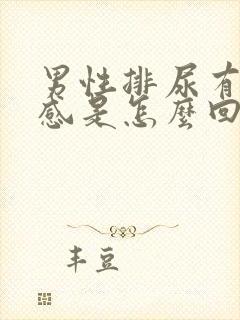 男性排尿有
感是怎麼回
丰豆